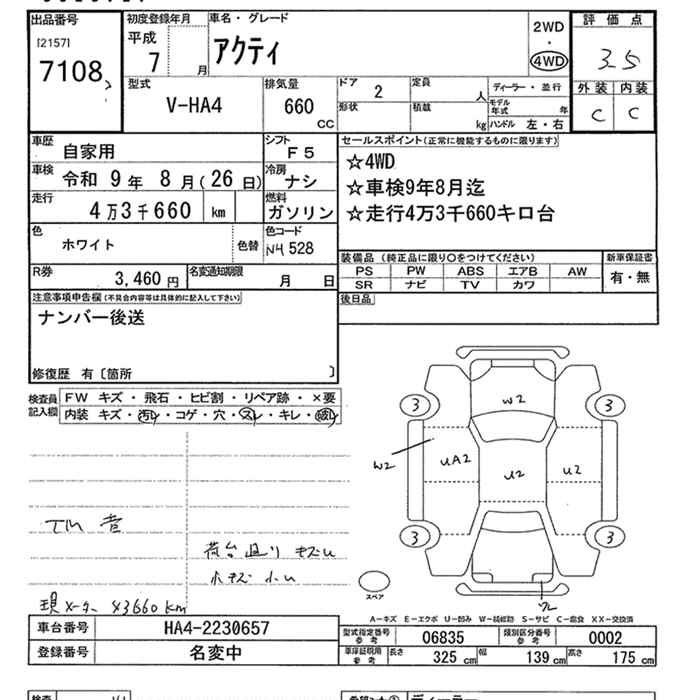 出品番号
[2157]
7108
初度登録年月
平成
7 月
車名・グレード
アクティ
2WD
・
4WD
評価点
3.5
外装 内装
C C
型式
V-HA4
排気量
660
CC
ドア
2
定員
人
形状
積載
kg
ディーラー・並行
モデル年式 年
ハンドル 左・右
車歴
自家用
シフト
F5
車検
令和 9年 8月(26日)
冷房
ナシ
走行
4万3千660 km
燃料
ガソリン
色
ホワイト
色替
色コード
NH528
R券
3,460円
名変通知期限
月 日
セールスポイント(正常に機能するものに限ります)
☆4WD
☆車検9年8月迄
☆走行4万3千660キロ台
装備品(純正品に限り〇をつけてください)
PS PW ABS エアB AW
SR ナビ TV カワ
新車保証書
有・無
後日品
注意事項申告欄(不具合内容等は具体的に記入して下さい)
ナンバー後送
修復歴 有〔箇所 〕
検査員記入欄
FW キズ・飛石・ヒビ割・リペア跡・×要
内装 キズ・汚レ・コゲ・穴・スレ・キレ・破レ
TM 音
荷台廻り キズU
小キズ 小U
現メーター 43660km
W2
3 3
W2
UA2
U2
U2
3 3
スペア
A-キズ E-エクボ U-凹み W-補修跡 S-サビ C-腐食 XX-交換済
車台番号
HA4-2230657
登録番号
名変中
型式指定番号
参考
06835
類別区分番号
参考
0002
車庫証明用
参考
長さ
325 cm
幅
139 cm
高さ
175 cm